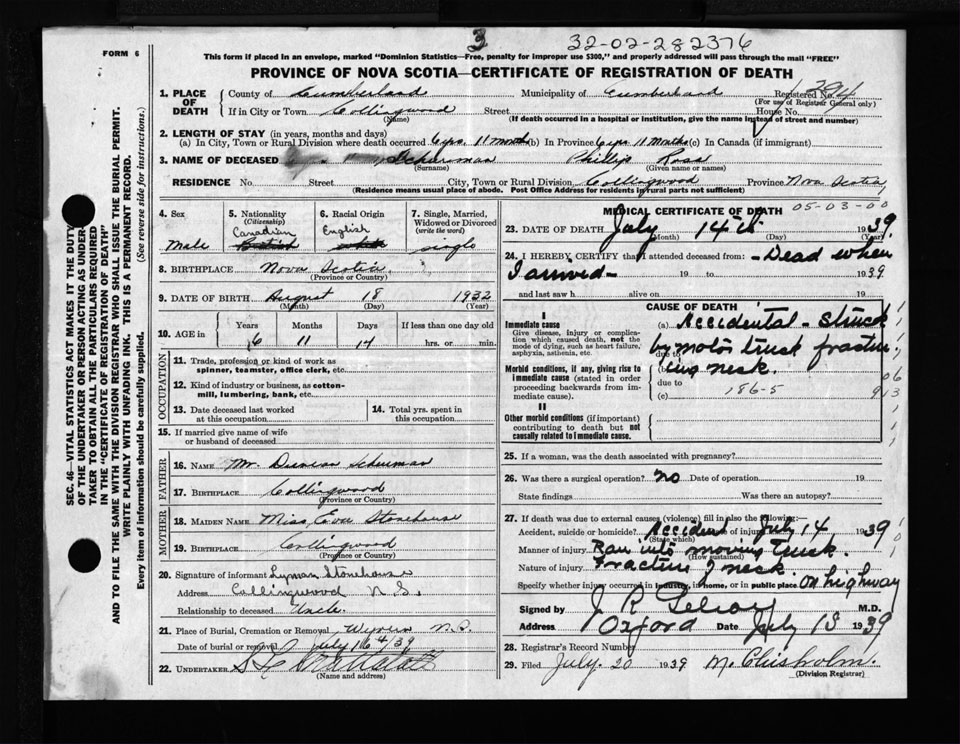 3
32-02-282376
FORM 6
This form if placed in an envelope, marked "Dominion Statistics—Free, penalty for improper use $300," and properly addressed will pass through the mail "FREE"
PROVINCE OF NOVA SCOTIA—CERTIFICATE OF REGISTRATION OF DEATH
SEC. 46—VITAL STATISTICS ACT MAKES IT THE DUTY
OF THE UNDERTAKER OR PERSON ACTING AS UNDER-
TAKER TO OBTAIN ALL THE PARTICULARS REQUIRED
IN THE "CERTIFICATE OF REGISTRATION OF DEATH"
AND TO FILE THE SAME WITH THE DIVISION REGISTRAR WHO SHALL ISSUE THE BURIAL PERMIT.
WRITE PLAINLY WITH UNFADING INK. THIS IS A PERMANENT RECORD.
Every item of information should be carefully supplied. (See reverse side for instructions.)
1. PLACE OF DEATH
County of Cumberland Municipality of Cumberland Registered No. 394
(For use of Registrar General only)
If in City or Town Collingwood Street House No.
(Name) (If death occurred in a hospital or institution, give the name instead of street and number)
2. LENGTH OF STAY (in years, months and days)
(a) In City, Town or Rural Division where death occurred 6 yrs 11 months (b) In Province 6 yrs 11 months (c) In Canada (if immigrant)
3. NAME OF DECEASED Schurman Phillip Ross
(Surname) (Given name or names)
RESIDENCE No. Street City, Town or Rural Division Collingwood Province Nova Scotia
(Residence means usual place of abode. Post Office Address for residents in rural parts not sufficient)
05-03-00
4. Sex Male
5. Nationality (Citizenship) Canadian British
6. Racial Origin English
7. Single, Married, Widowed or Divorced (write the word) single
8. BIRTHPLACE Nova Scotia
(Province or Country)
9. DATE OF BIRTH August 18 1932
(Month) (Day) (Year)
10. AGE in Years Months Days If less than one day
6 11 14 hrs. or min.
OCCUPATION
11. Trade, profession or kind of work as spinner, teamster, office clerk, etc.
12. Kind of industry or business, as cotton-mill, lumbering, bank, etc.
13. Date deceased last worked at this occupation
14. Total yrs. spent in this occupation
15. If married give name of wife or husband of deceased
FATHER
16. NAME Mr. Duncan Schurman
17. BIRTHPLACE Collingwood
(Province or Country)
MOTHER
18. MAIDEN NAME Miss Eva Stonehouse
19. BIRTHPLACE Collingwood
(Province or Country)
20. Signature of informant Lyman Stonehouse
Address Collingwood N.S.
Relationship to deceased Uncle.
21. Place of Burial, Cremation or Removal
Date of burial or removal July 16 39
22. UNDERTAKER
(Name and address)
MEDICAL CERTIFICATE OF DEATH
23. DATE OF DEATH July 14th 1939
(Month) (Day) (Year)
24. I HEREBY CERTIFY that I attended deceased from: - Dead when
I arrived - 19 to 1939
and last saw h alive on 19
CAUSE OF DEATH
I
Immediate cause
Give disease, injury or complication which caused death, not the mode of dying, such as heart failure, asphyxia, asthenia, etc.
(a) Accidental - Struck
due to by motor truck fractur-
Morbid conditions, if any, giving rise to immediate cause (stated in order proceeding backwards from immediate cause).
(b) ing neck.
due to
(c) 186-5
06
913
II
Other morbid conditions (if important) contributing to death but not causally related to immediate cause.
25. If a woman, was the death associated with pregnancy?
26. Was there a surgical operation? no Date of operation 19
State findings Was there an autopsy?
27. If death was due to external causes (violence) fill in also the following:—
Accident, suicide or homicide? Accident Date of injury July 14 1939
(State which)
Manner of injury Ran into moving truck.
(How sustained)
Nature of injury Fracture of neck.
Specify whether injury occurred in industry, in home, or in public place. on highway
Signed by M.D.
Address Oxford Date July 18 1939
28. Registrar's Record Number
29. Filed July 20 1939 M. Chisholm.
(Division Registrar)